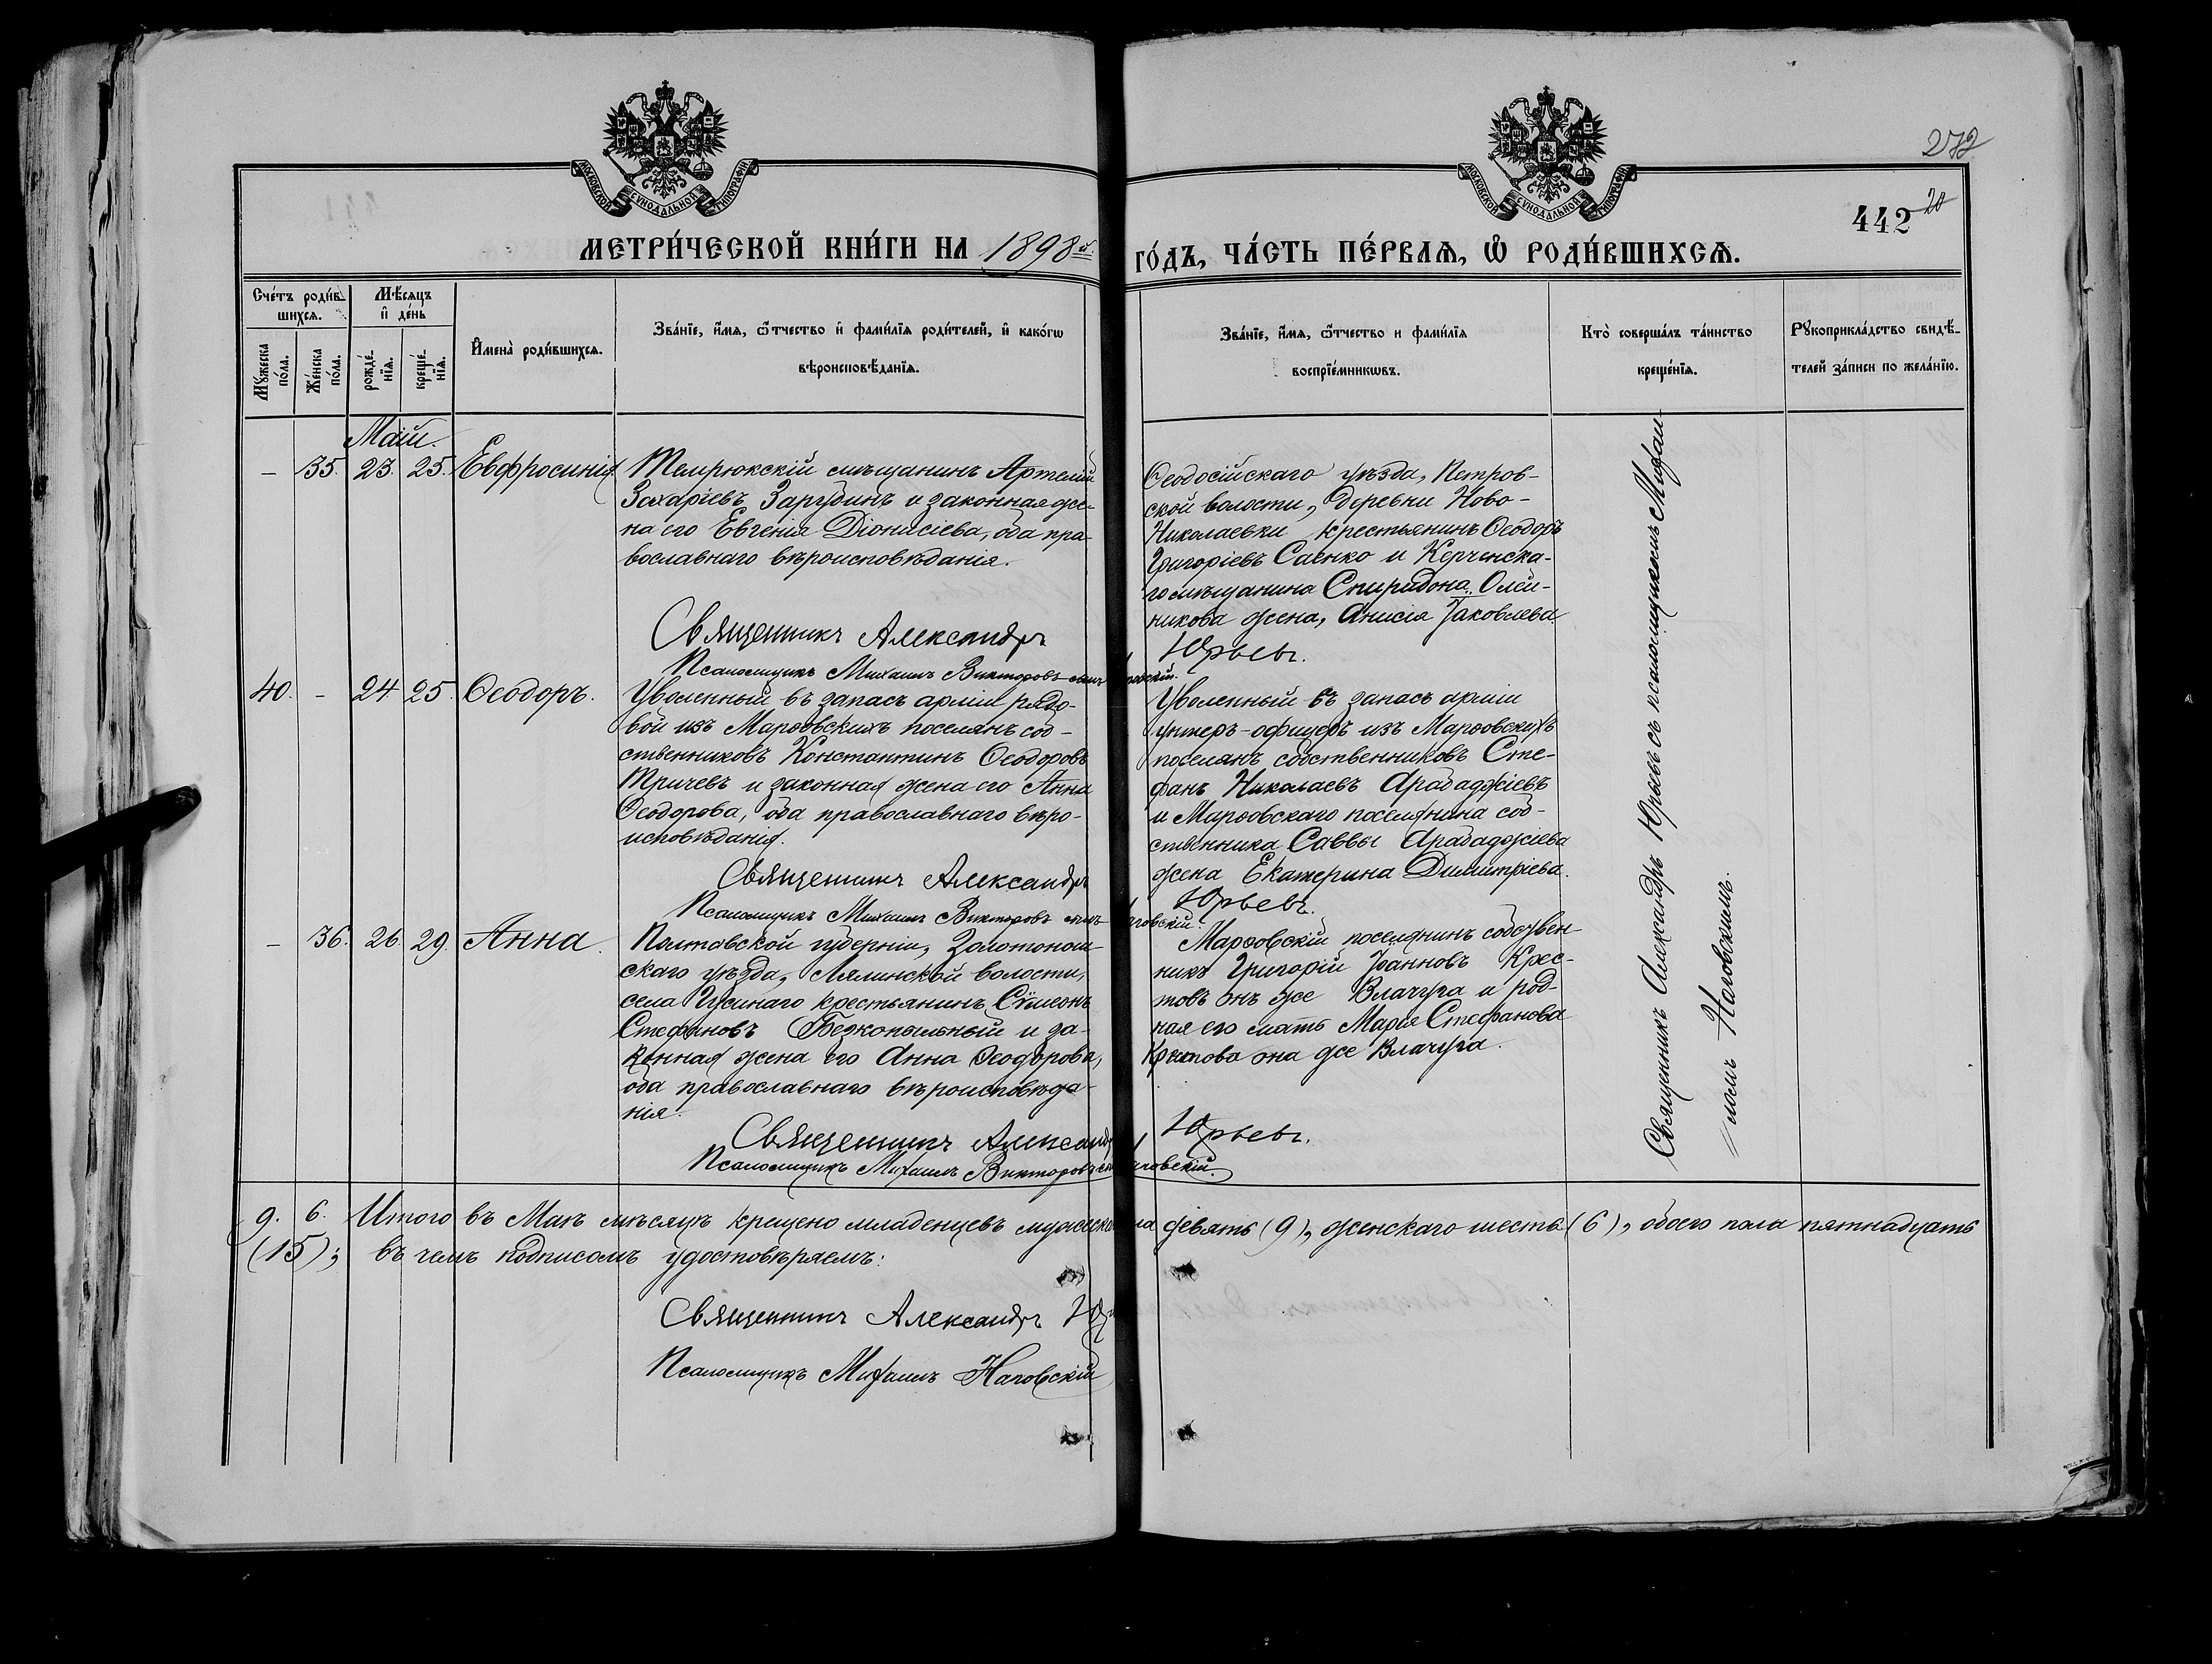 272
442 20
МОСКОВСКОЙ СѴНОДАЛЬНОЙ ТИПОГРАФІИ
МОСКОВСКОЙ СѴНОДАЛЬНОЙ ТИПОГРАФІИ
МЕТРИ́ЧЕСКОЙ КНИ́ГИ НА 1898й. ГО́ДЪ, ЧА́СТЬ ПЕ́РВАѦ, Ѡ РОДИ́ВШИХСѦ.
Сче́тъ роди́в-
шихсѧ.
Мѣ́сѧцъ
и де́нь
Мꙋ́жеска
по́ла.
Же́нска
по́ла.
рожде́-
нїѧ.
креще́-
нїѧ.
Имена̀ роди́вшихсѧ.
Зва́нїе, и́мѧ, ѻ́тчество и фами́лїѧ роди́телей, и како́гѡ
вѣроисповѣ́данїѧ.
Зва́нїе, и́мѧ, ѻ́тчество и фами́лїѧ
воспрїе́мникѡвъ.
Кто̀ соверша́лъ та́инство
креще́нїѧ.
Рꙋкоприкла́дство свидѣ́-
телей за́писи по жела́нїю.
Май.
– 35. 23. 25. Евфросинія.
Темрюкскій мѣщанинъ Артемій
Захаріевъ Зарудинъ и законная же-
на его Евгенія Діонисіева, оба пра-
вославнаго вѣроисповѣданія.
Священникъ Александръ Юрьевъ.
Псаломщикъ Михаилъ Викторовъ сынъ
Ѳеодосійскаго уѣзда, Петров-
ской волости, деревни Ново-
Николаевки крестьянинъ Ѳеодоръ
Григоріевъ Саенко и Керченска-
го мѣщанина Спиридона Олей-
никова жена, Анисія Іаковлева
40. – 24 25. Ѳеодоръ.
Уволенный въ запасъ арміи рядо-
вой изъ Марѳовскихъ поселянъ соб-
ственниковъ Константинъ Ѳеодоровъ
Тричевъ и законная жена его Анна
Ѳеодорова, оба православнаго вѣро-
исповѣданія.
Священникъ Александръ Юрьевъ.
Псаломщикъ Михаилъ Викторовъ сынъ
Уволенный въ запасъ арміи
унтеръ-офицеръ изъ Марѳовскихъ
поселянъ собственниковъ Сте-
фанъ Николаевъ Арабаджіевъ
и Марѳовскаго поселянина соб-
ственника Саввы Арабаджіева
жена Екатерина Димитріева.
– 36. 26. 29. Анна.
Полтавской губерніи, Золотонош-
скаго уѣзда, Лялинской волости,
села Гусинаго крестьянинъ Сѵмеонъ
Стефановъ Безкопыльный и за-
конная жена его Анна Ѳеодорова,
оба православнаго вѣроисповѣда-
нія.
Священникъ Александръ Юрьевъ.
Псаломщикъ Михаилъ Викторовъ
Марѳовскій поселянинъ собствен-
никъ Григорій Іоанновъ Крес-
товъ онъ же Влачуга и род-
ная его мать Марія Стефанова
Крестова она же Влачуга.
Священникъ Александръ Юрьевъ съ псаломщикомъ Михаи-
ломъ Наговскимъ.
9. 6. Итого въ Маѣ мѣсяцѣ крещено младенцевъ мужеска пола девять (9), женскаго шесть (6), обоего пола пятнадцать
(15); въ чемъ подписомъ удостовѣряемъ:
Священникъ Александръ
Псаломщикъ Михаилъ Наговскій